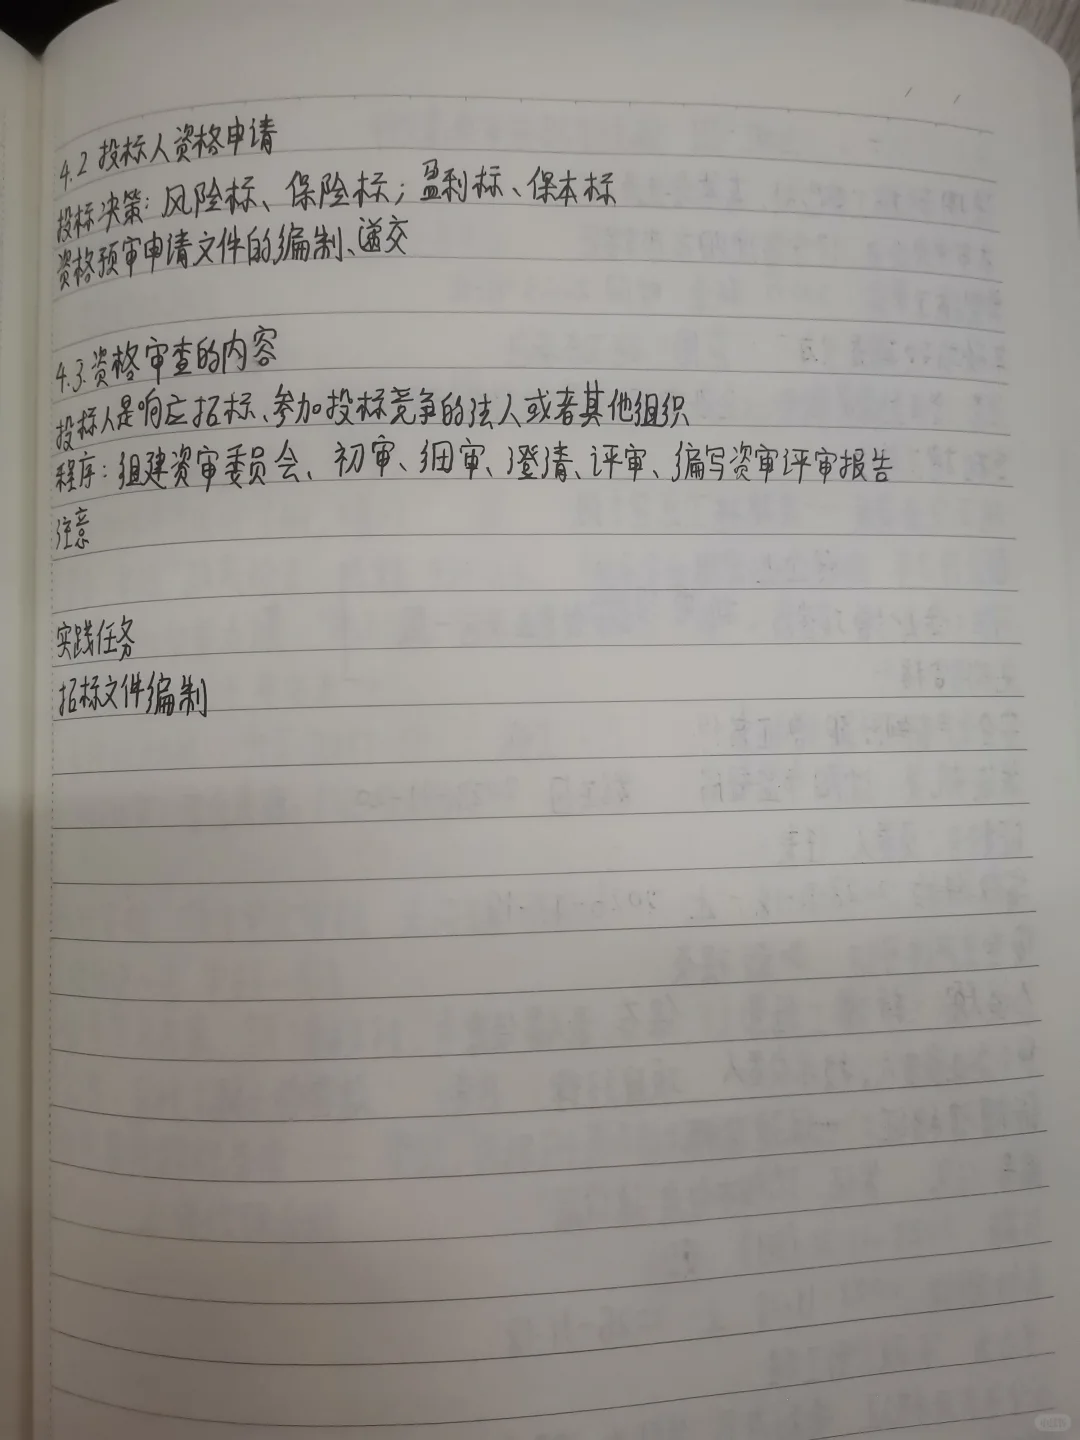 4.2 投标人资格申请
投标决策：风险标、保险标；盈利标、保本标
资格预审申请文件的编制、递交
4.3.资格审查的内容
投标人是响应招标、参加投标竞争的法人或者其他组织
程序：组建资审委员会、初审、细审、澄清、评审、编写资审评审报告
注意
实践任务
招标文件编制